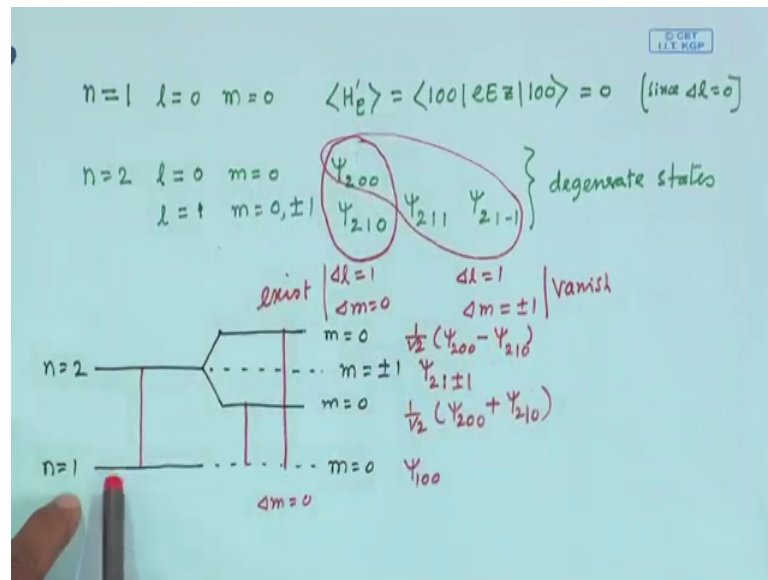 © CET
I.I.T. KGP
n=1 l=0 m=0 ⟨H'e⟩ = ⟨100|eEz|100⟩ = 0 [since Δl=0]
n=2 l=0 m=0 Ψ200
l=1 m=0,±1 Ψ210 Ψ211 Ψ21-1 } degenrate states
exist | Δl=1 Δl=1 | vanish
Δm=0 Δm=±1
m=0 1/√2 (Ψ200-Ψ210)
n=2 m=±1 Ψ21±1
m=0 1/√2 (Ψ200+Ψ210)
n=1 m=0 Ψ100
Δm=0